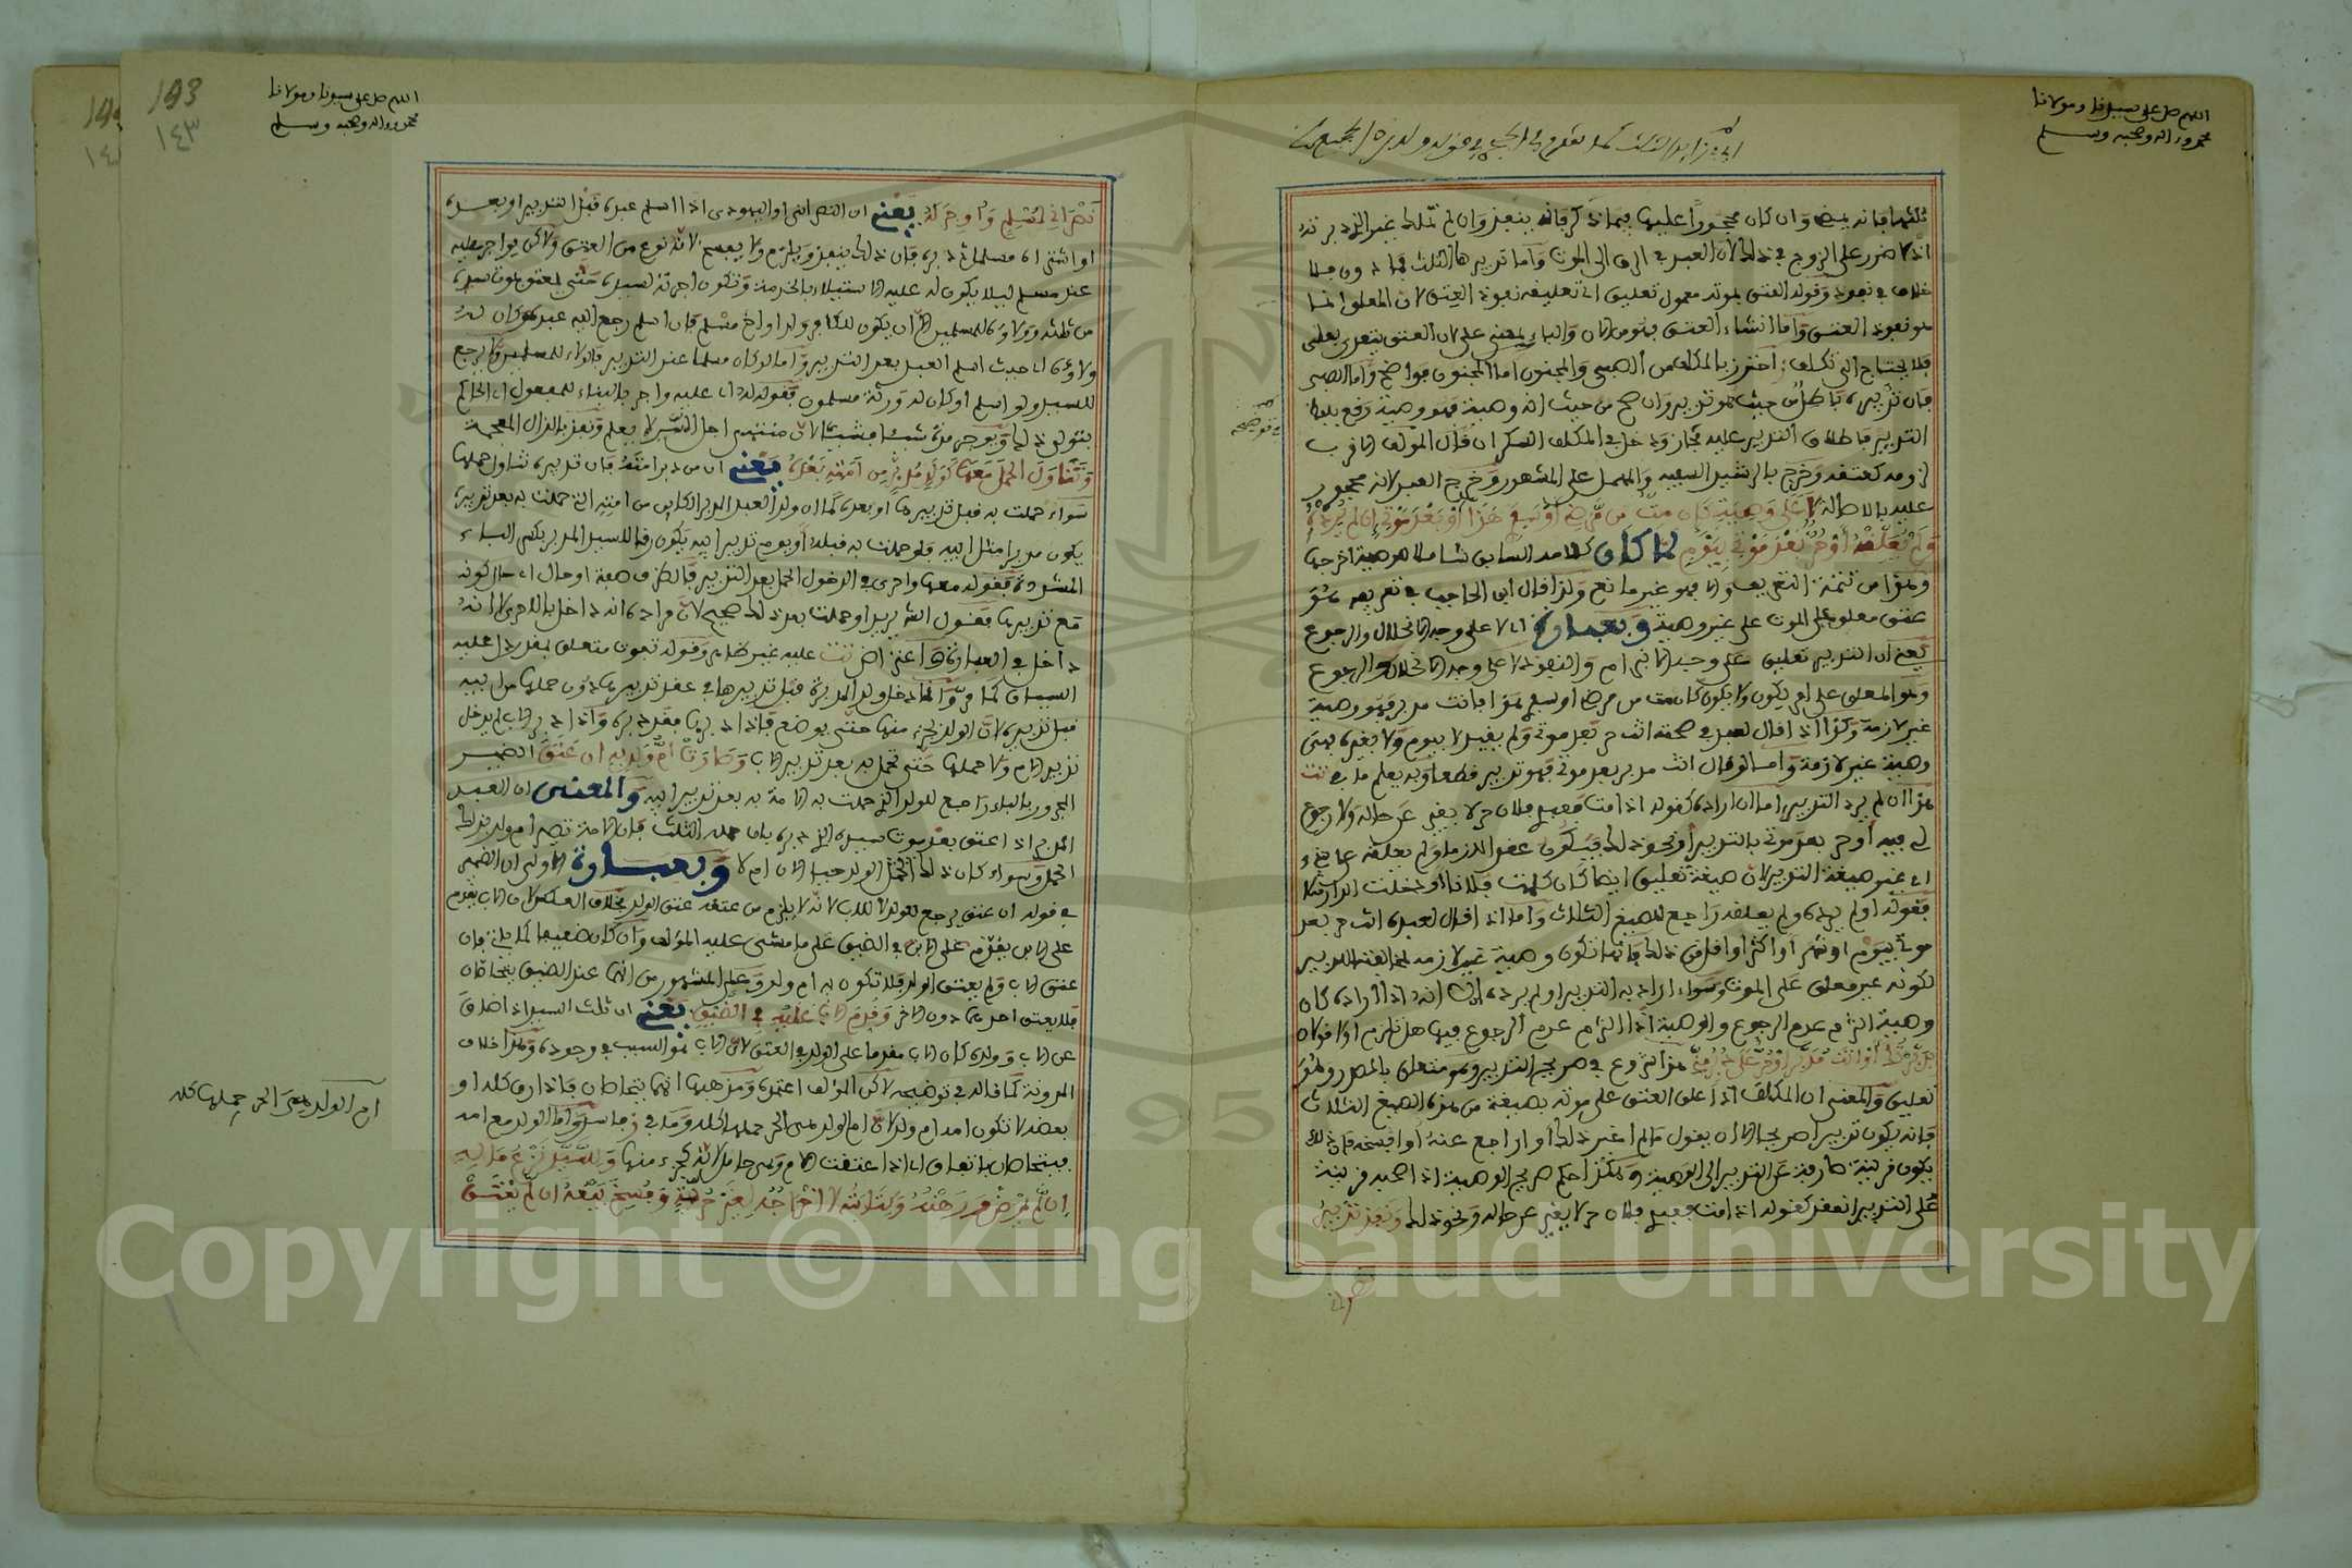 اللهم صل على سيدنا ومولانا
محمد واله وصحبه وسلم
ثلثها فانه يمضي وان كان محجورا عليها فيما ذكر فانه ينفذ وان لم تملك غير الذي دبرته
اذ لا ضرر على الزوج في ذلك لان العبد في الرق الى الموت واما تدبيرها الثلث فما دون فلا
خلاف في نفوذه وقوله العتق بموته معمول تعليق اي تعليقه نفوذ العتق لان المعلق انما
هو نفوذ العتق واما انشاء العتق فهو من الان والباء بمعنى على لان العتق يتعدى بعلى
فلا يحتاج الى تكلف احترز بالمكلف من الصبي والمجنون اما المجنون فواضح واما الصبي
فان تدبيره باطل من حيث هو تدبير وان صح من حيث انه وصية فهو وصية وقع بلفظ
التدبير فاطلاق التدبير عليه مجاز ودخل في المكلف السكران فان المؤلف
لزومه كعتقه وخرج بالرشيد السفيه والمهمل على المشهور وخرج العبد لانه محجور
عليه بالاصالة لا على وصية كان مت من مرضي او سفري هذا او بعد موتي ان لم يرده
ولم يعلقه او حر بعد موتي بيوم لما كان كلامه السابق شاملا للوصية اخرجها
وهذا من تتمة التعريف والا فهو غير مانع ولذا قال ابن الحاجب في تعريفه هو
عتق معلق على الموت على غير وصية وبعبارة اي لا على وجه الانحلال والرجوع
يعني ان التدبير تعليق على وجه الانبرام والنفوذ لا على وجه الانحلال والرجوع
وهو المعلق على امر يكون ولا يكون كان مت من مرضي او سفري هذا فانت مدبر فهو وصية
غير لازمة وكذا اذا قال لعبده في صحته انت حر بعد موتي ولم يقيد لا بيوم ولا بغيره فهي
وصية غير لازمة واما لو قال انت مدبر بعد موتي فهو تدبير قطعا وبه يعلم ما في تت
هذا ان لم يرد التدبير اما ان اراده كقوله اذا مت فعبدي فلان حر لا يغير عن حاله ولا رجوع
لي فيه او حر بعد موتي بالتدبير او نحو ذلك فيكون عقدا لازما ولم يعلقه
اي بغير صيغة التدبير لان صيغة تعليق ايضا كان كلمت فلانا او دخلت الدار
فقوله او لم يرده ولم يعلقه راجع للصيغ الثلاث واما اذا قال لعبده انت حر بعد
موتي بيوم او شهر او اكثر او اقل من ذلك فانها تكون وصية غير لازمة لمخالفته التدبير
لكونه غير معلق على الموت وسواء اراد به التدبير او لم يرده انه اذا اراده كان
وصية التزم عدم الرجوع والوصية اذا التزم عدم الرجوع فيها هل تلزم او لا قولان
بدبرتك او انت مدبر او حر عن دبر مني هذا شروع في صريح التدبير وهو متعلق بالمصدر وهو
تعليق والمعنى ان المكلف اذا علق العتق على موته بصيغة من هذه الصيغ الثلاث
فانه يكون تدبيرا صريحا الا ان يقول ما لم اغير ذلك او ارجع عنه او افسخه فان ذلك
يكون قرينة صارفة عن التدبير الى الوصية وهكذا حكم صريح الوصية اذا صحبه قرينة
على التدبير انعقد كقوله اذا مت فعبدي فلان حر لا يغير عن حاله ونحو ذلك ونفذ تدبير
نصراني
193
١٤٣
اللهم صل على سيدنا ومولانا
محمد واله وصحبه وسلم
نصراني لمسلم واوجر له يعني ان النصراني او اليهودي اذا اسلم عبده قبل التدبير او بعده
او اشترى مسلما ثم دبره فان ذلك ينفذ ويلزم ولا يفسخ لانه نوع من العتق ولاكن يؤاجر عليه
عند مسلم ليلا يكون له عليه استيلاء بالخدمة وتكون اجرته لسيده حتى يعتق بموت سيده
من ثلثه وولاؤه للمسلمين الا ان يكون للكافر ولد او اخ مسلم فان اسلم رجع اليه عبده وكان له
ولاؤه اي حيث اسلم العبد بعد التدبير واما لو كان مسلما عند التدبير فالولاء للمسلمين ولا يرجع
للسيد ولو اسلم او كان له ورثة مسلمون فقوله له اي عليه واوجر بالبناء للمفعول اي الحاكم
يتولى ذلك ويوجر مدة شيئا فشيئا لان منتهى اجل السيد لا يعلم ونفذ بالذال المعجمة
وتناول الحمل معها كولد مدبر من امته بعده يعني ان من دبر امته فان تدبيره تناول حملها
سواء حملت به قبل تدبيرها او بعده كما ان ولد العبد المدبر الكاين من امته التي حملت به بعد تدبيره
يكون مدبرا مثل ابيه فلو حملت به قبله او يوم تدبير ابيه يكون رقا للسيد المدبر بكسر الباء
المشددة فقوله معها واحرى في الدخول الحمل بعد التدبير فالظرف صفة او حال اي حال كونه
مع تدبيرها فقول الشارح يريد او حملت بعد ذلك صحيح لان مراده انه داخل بالاحرى لا انه
داخل في العبارة فاعتراض تت عليه غير ظاهر وقوله بعده متعلق بمقدر دل عليه
السياق كما مر وانما دخل ولد المدبرة قبل تدبيرها في عقد تدبيرها دون حملها من ابيه
قبل تدبيره لان الولد كجزء منها حتى يوضع فاذا دبرها فقد دبره واذا دبر الاب لم يدخل
تدبير الام ولا حملها حتى تحمل به بعد تدبير الاب وصارت ام ولد به ان عتق الضمير
المجرور بالباء راجع للولد الذي حملت به الامة به بعد تدبير ابيه والمعنى ان العبد
المدبر اذا عتق بعد موت سيده الذي دبره بان حمله الثلث فان الامة تصير ام ولد بذلك
الحمل وسواء كان ذلك الحمل الولد حيا الان ام لا وبعبارة الاولى ان الضمير
في قوله ان عتق يرجع للولد لا للاب لانه لا يلزم من عتقه عتق الولد بخلاف العكس لان الاب يقدم
على الابن يقدم على الابن في الضيق على ما مشى عليه المؤلف وان كان ضعيفا كما ياتي فان
عتق الاب ولم يعتق الولد فلا تكون به ام ولد وعلى المشهور من انهما عند الضيق يتحاصان
فلا يعتق احدهما دون الاخر وقدم الاب عليه في الضيق يعني ان ثلث السيد اذا ضاق
عن الاب وولده كان الاب مقدما على الولد في العتق لان الاب هو السبب في وجوده وهذا خلاف
المدونة كما قاله في توضيحه لاكن المؤلف اعتمده ومذهبها انهما يتحاصان فاذا رق كله او
بعضه لا تكون امه ام ولد لان ام الولد هي الحر حملها كله وما في واما الولد مع امه
فيتحاصان باتفاق اي اذا عتقت الام وهي حامل لانه كجزء منها وللسيد نزع ماله
ان لم يمرض ورهنه وكتابته لا اخراجه لغير حرية وفسخ بيعه ان لم يعتق
ام الولد هي الحر حملها كله